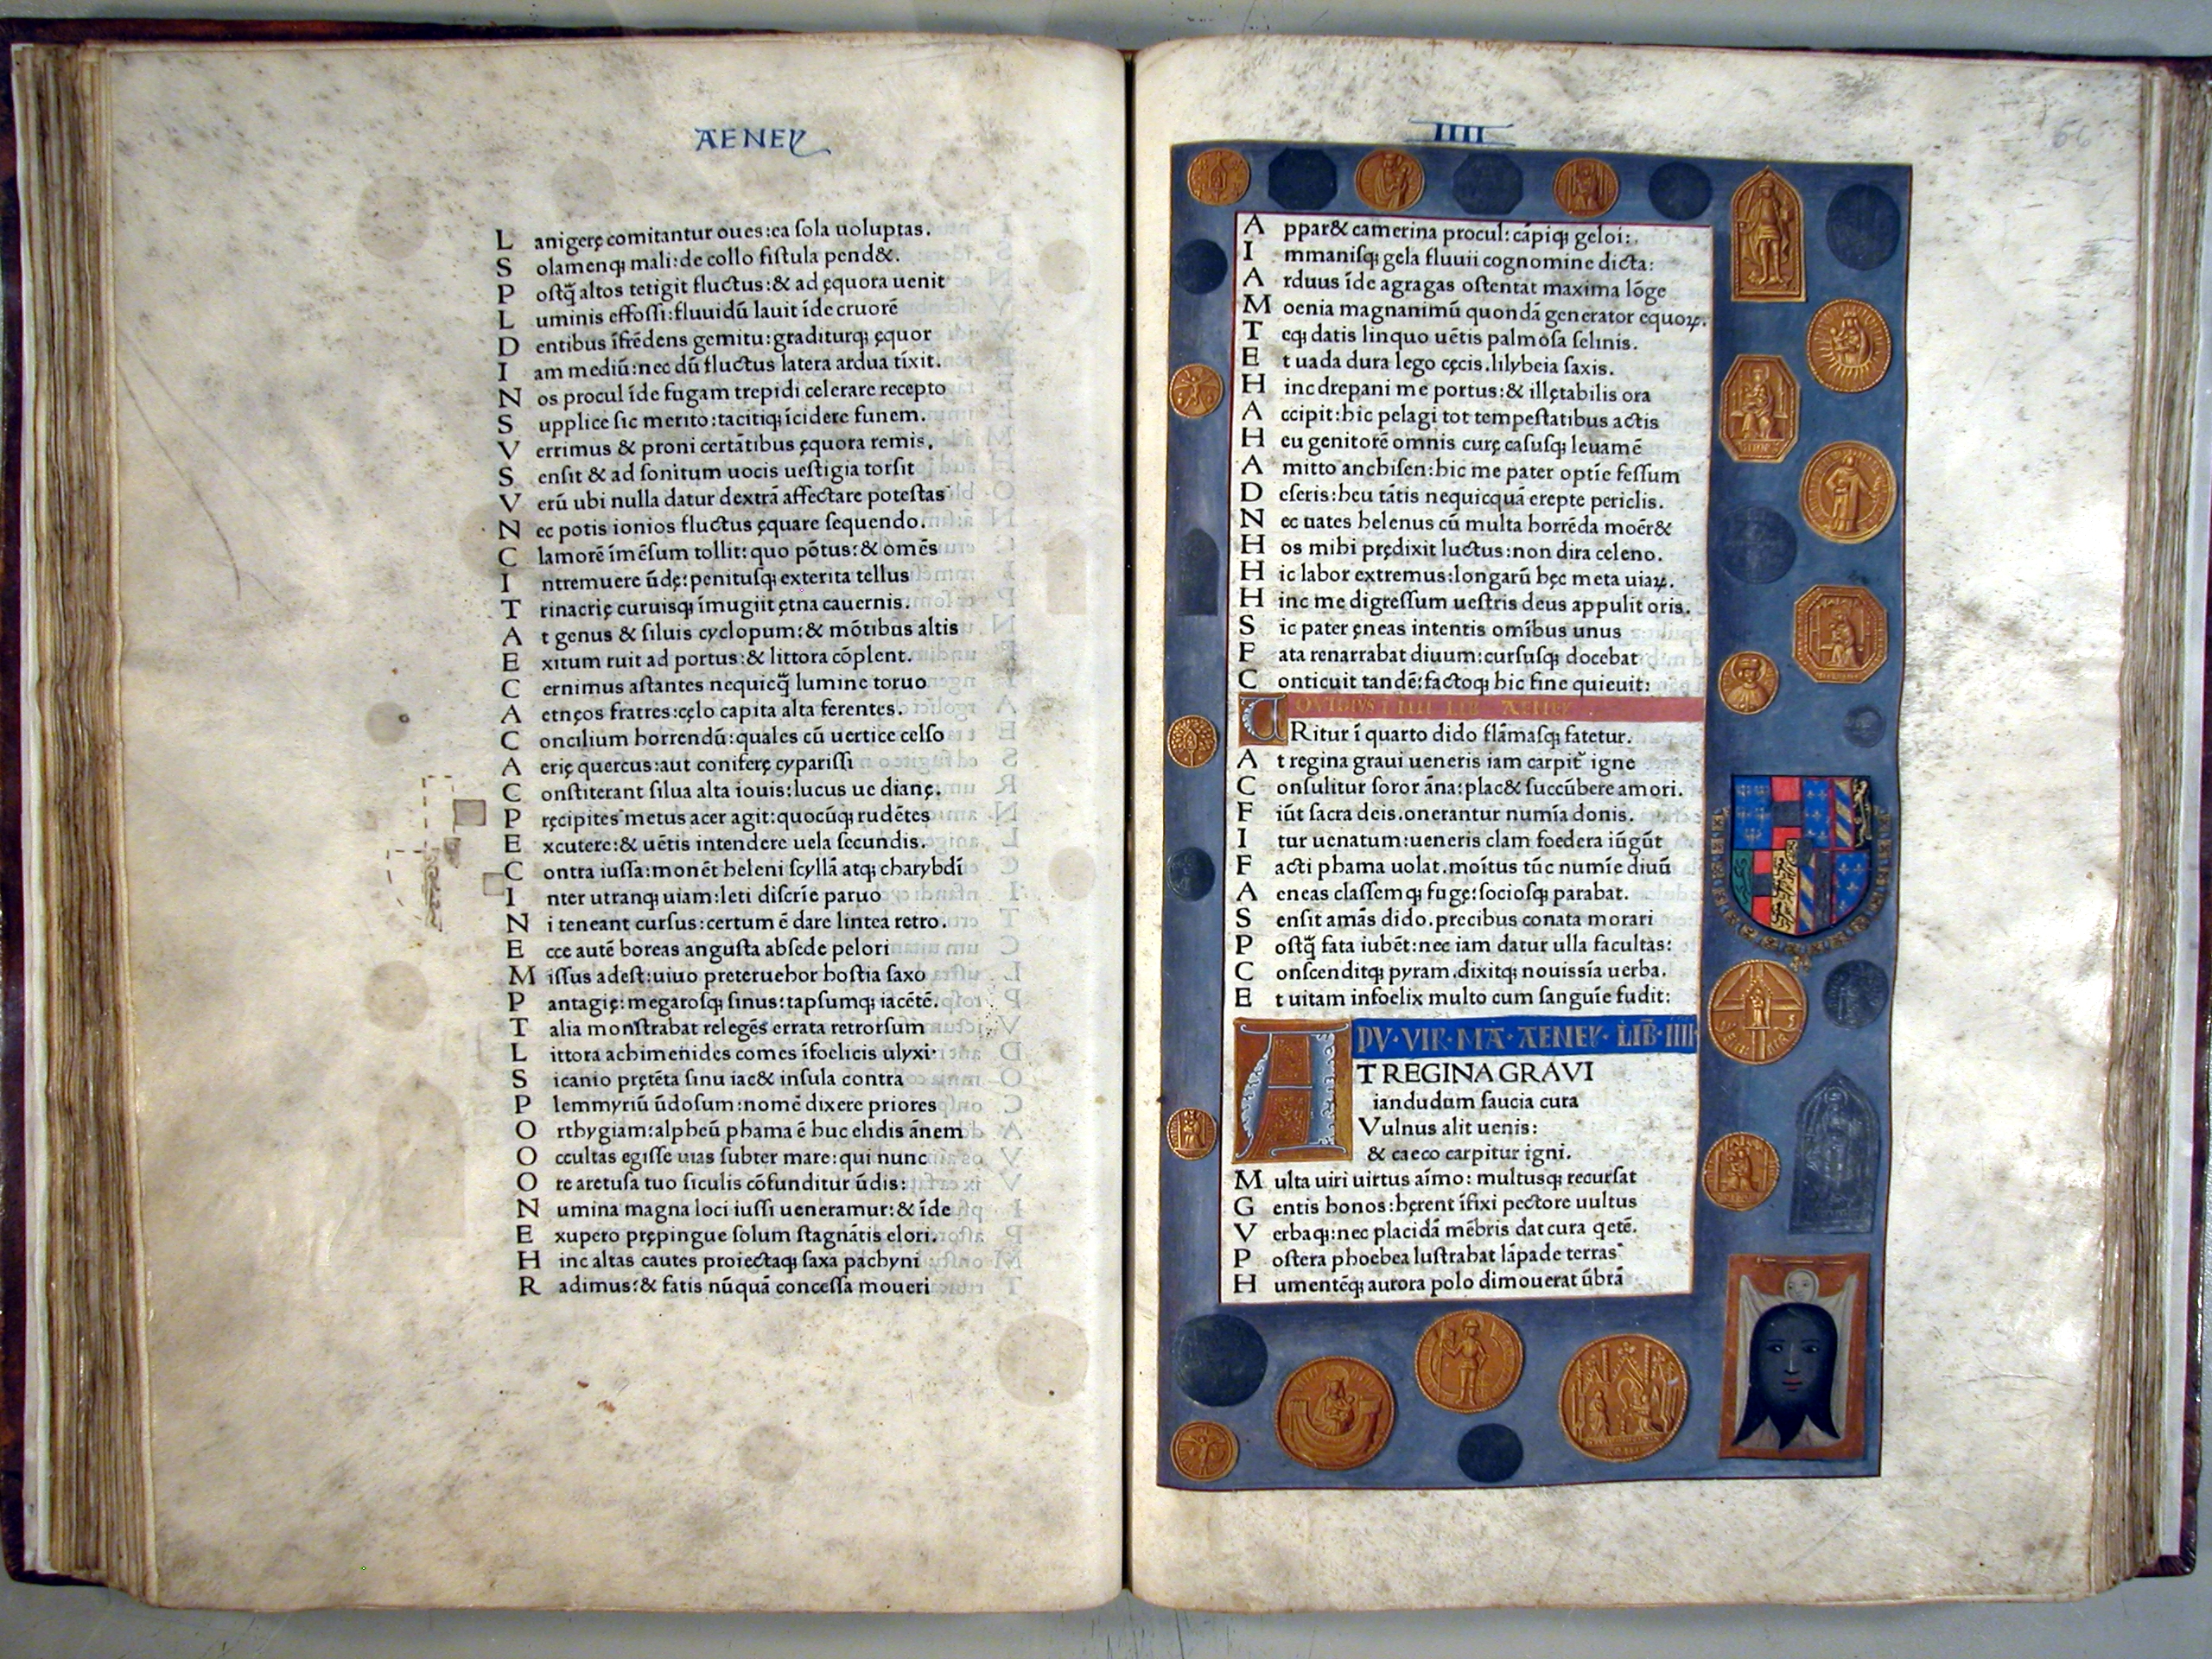 AENEẏ
L anigerę comitantur oues:ea ſola uoluptas.
S olamenqꝫ mali:de collo fiſtula pend&.
P oſtq̃ altos tetigit fluctus:& ad ęquora uenit
L uminis effoſſi:fluuidũ lauit ĩde cruorẽ
D entibus ĩfrẽdens gemitu:graditurqꝫ ęquor
I am mediũ:nec dũ fluctus latera ardua tĩxit.
N os procul ĩde fugam trepidi celerare recepto
S upplice ſic merito:tacitiqꝫ ĩcidere funem.
V errimus & proni certãtibus ęquora remis.
S enſit & ad ſonitum uocis ueſtigia torſit
V erũ ubi nulla datur dextrã affectare poteſtas
N ec potis ionios fluctus ęquare ſequendo.
C lamorẽ ĩmẽſum tollit:quo põtus:& omẽs
I ntremuere ũdę:penituſqꝫ exterita tellus
T rinacrię curuiſqꝫ ĩmugiit ętna cauernis.
A t genus & ſiluis cyclopum:& mõtibus altis
E xcitum ruit ad portus:& littora cõplent.
C ernimus aſtantes nequicq̃ lumine toruo
A etnęos fratres:cęlo capita alta ferentes.
C oncilium horrendũ:quales cũ uertice celſo
A erię quercus:aut coniferę cypariſſi
C onſtiterant ſilua alta iouis:lucus ue dianę.
P ręcipites metus acer agit:quocũqꝫ rudẽtes
E xcutere:& uẽtis intendere uela ſecundis.
C ontra iuſſa:monẽt heleni ſcyllã atqꝫ charybdĩ
I nter utranqꝫ uiam:leti diſcrĩe paruo
N i teneant curſus:certum ẽ dare lintea retro.
E cce autẽ boreas anguſta abſede pelori
M iſſus adeſt:uiuo preteruehor hoſtia ſaxo
P antagię:megaroſqꝫ ſinus:tapſumqꝫ iacẽtẽ.
T alia monſtrabat relegẽs errata retrorſum
L ittora achimenides comes ĩfoelicis ulyxi·
S icanio prętẽta ſinu iac& inſula contra
P lemmyriũ ũdoſum:nomẽ dixere priores
O rthygiam:alpheũ phama ẽ huc elidis ãnem
O ccultas egiſſe uias ſubter mare:qui nunc
O re aretuſa tuo ſiculis cõfunditur ũdis:
N umina magna loci iuſſi ueneramur:& ĩde
E xupero prępingue ſolum ſtagnãtis elori.
H inc altas cautes proiectaqꝫ ſaxa pachyni
R adimus:& fatis nũquã conceſſa moueri
IIII
66
A ppar& camerina procul:cãpiqꝫ geloi:
I mmaniſqꝫ gela fluuii cognomine dicta:
A rduus ĩde agragas oſtentat maxima lõge
M oenia magnanimũ quondã generator equoꝝ.
T eqꝫ datis linquo uẽtis palmoſa ſelinis.
E t uada dura lego cęcis.lilybeia ſaxis.
H inc drepani me portus:& illętabilis ora
A ccipit:hic pelagi tot tempeſtatibus actis
H eu genitorẽ omnis curę caſuſqꝫ leuamẽ
A mitto anchiſen:hic me pater optĩe feſſum
D eſeris:heu tãtis nequicquã erepte periclis.
N ec uates helenus cũ multa horrẽda moẽr&
H os mihi prędixit luctus:non dira celeno.
H ic labor extremus:longarũ hęc meta uiaꝝ.
H inc me digreſſum ueſtris deus appulit oris.
S ic pater ęneas intentis omĩbus unus
F ata renarrabat diuum:curſuſqꝫ docebat
C onticuit tandẽ:factoqꝫ hic fine quieuit:
OVIDIVS I IIII LIB AENEẏ
URitur ĩ quarto dido flãmaſqꝫ fatetur.
A t regina graui ueneris iam carpit̃ igne
C onſulitur ſoror ãna:plac& ſuccũbere amori.
F iũt ſacra deis.onerantur numĩa donis.
I tur uenatum:ueneris clam foedera iũgũt
F acti phama uolat.moĩtus tũc numĩe diuũ
A eneas claſſemqꝫ fugę:ſocioſqꝫ parabat.
S enſit amãs dido.precibus conata morari
P oſtq̃ fata iubẽt:nec iam datur ulla facultas:
C onſcenditqꝫ pyram.dixitqꝫ nouiſſĩa uerba.
E t uitam infoelix multo cum ſanguĩe fudit:
PV·VIR·MÃ·AENEẏ·LIB̃·IIII·
AT REGINA GRAVI
iandudum ſaucia cura
Vulnus alit uenis:
& caeco carpitur igni.
M ulta uiri uirtus aĩmo:multuſqꝫ recurſat
G entis honos:hęrent ĩfixi pectore uultus
V erbaqꝫ:nec placidã mẽbris dat cura q̇etẽ.
P oſtera phoebea luſtrabat lãpade terras
H umentẽqꝫ aurora polo dimouerat ũbrã